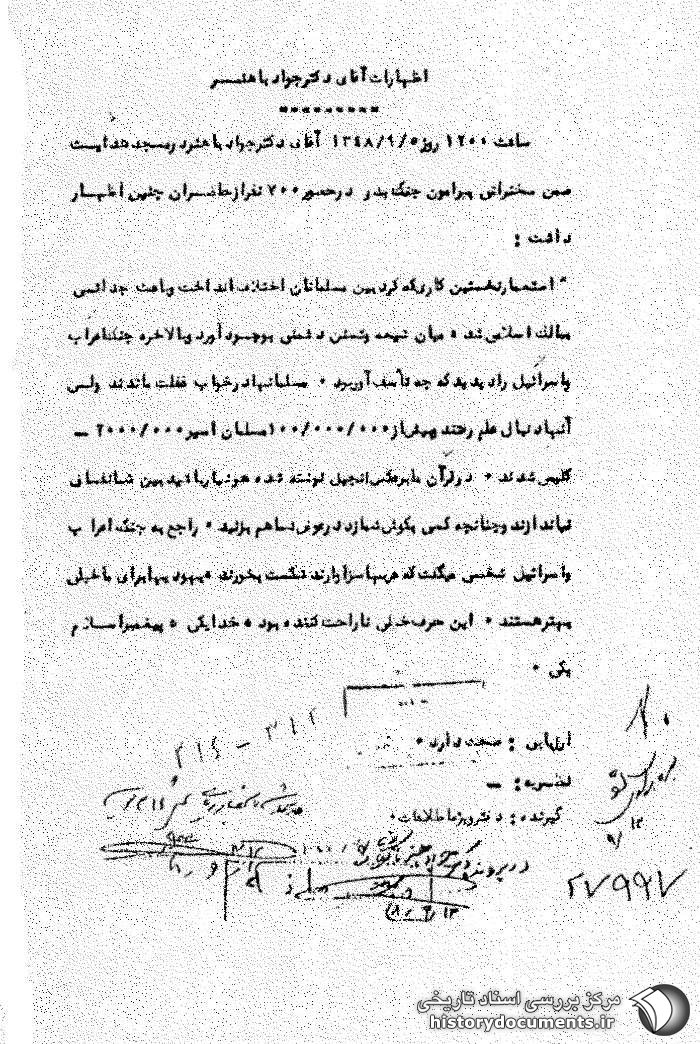 اظهارات آقای دکتر جواد باهنر
ساعت ۱۲۰۰ روز ۱۳۴۸/۹/۵ آقای دکتر جواد باهنر در مسجد هدایت
ضمن سخنرانی پیرامون جنگ بدر در حضور ۷۰۰ نفر از حاضران چنین اظهار
داشت :
" استعمار نخستین کاری که کرد بین مسلمانان اختلاف انداخت و باعث جدائی
ممالک اسلامی شد ۰ میان شیعه و تسنن دشمنی بوجود آورد و بالاخره جنگ اعراب
و اسرائیل را پدید که چه تأسف آور بود ۰ مسلمانها در خواب غفلت ماندند ولی
آنها دنبال علم رفتند و بیش از ۱۰۰/۰۰۰/۰۰۰ مسلمان اسیر ۲۰۰۰/۰۰۰ ــ
کلیمی شدند ۰ در قرآن ما برعکس انجیل نوشته شده هوشیار باشید بین شما نفاق
نیاندازند و چنانچه کسی بگوش شما زد در عوض شما هم بزنید ۰ راجع به جنگ اعراب
و اسرائیل شخصی میگفت که عربها سزاوارند شکست بخورند ۰ یهودیها برای ما خیلی
بهتر هستند ۰ این حرف خیلی ناراحت کننده بود ۰ خدا یکی ۰ پیغمبر اسلام
یکی ۰
ارزیابی : صحت دارد ۰
نظریه : ــ
گیرنده : دفتر ویژه اطلاعات۰
۳۱۲ - ۳۱٤
۲۷۹۹۷
مرکز بررسی اسناد تاریخی
historydocuments.ir